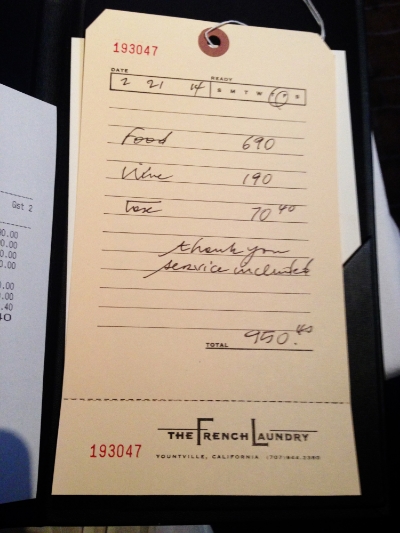 193047
DATE
READY
2 21 14 S M T W T F S
Food 690
Wine 190
Tax 70 40
thank you
service included
TOTAL 950.40
193047
THE FRENCH LAUNDRY
YOUNTVILLE, CALIFORNIA (707) 944 2380
Gst 2
0.00
0.00
0.00
0.00
.00
.40
40